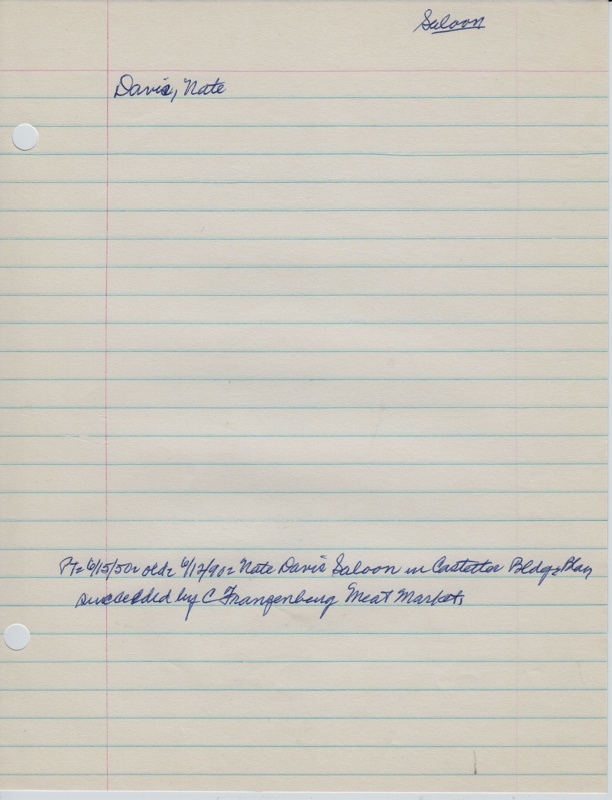 Saloon
Davis, Nate
Pt= 6/15/50= old= 6/12/90= Nate Davis Saloon in Castetter Bldg=
succeeded by C Frangenberg Meat Market,